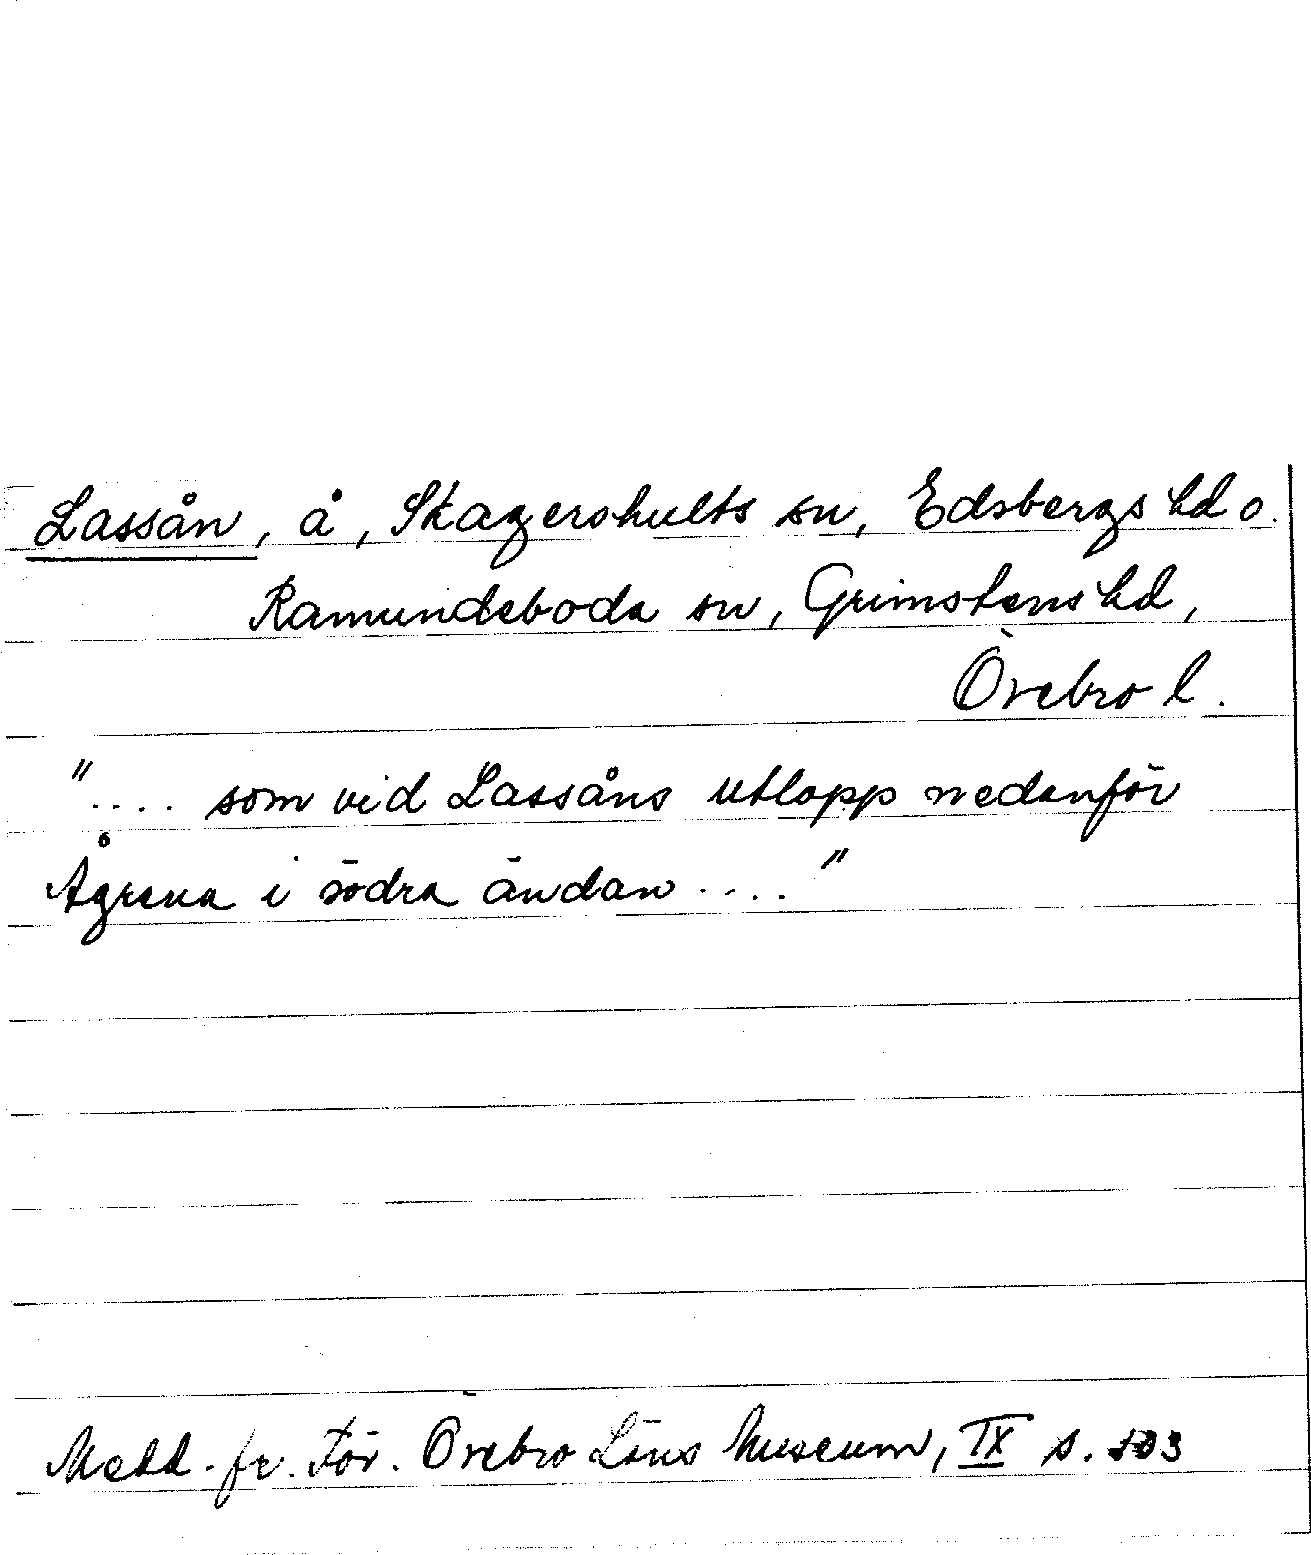 Lassån, å, Skagershults sn, Edsbergs hd o.
Ramundeboda sn, Grimstens hd,
Örebro l.
".... som vid Lassåns utlopp nedanför
Ågrena i södra ändan ...."
Medd. fr. För. Örebro Läns Museum, IX s. 103